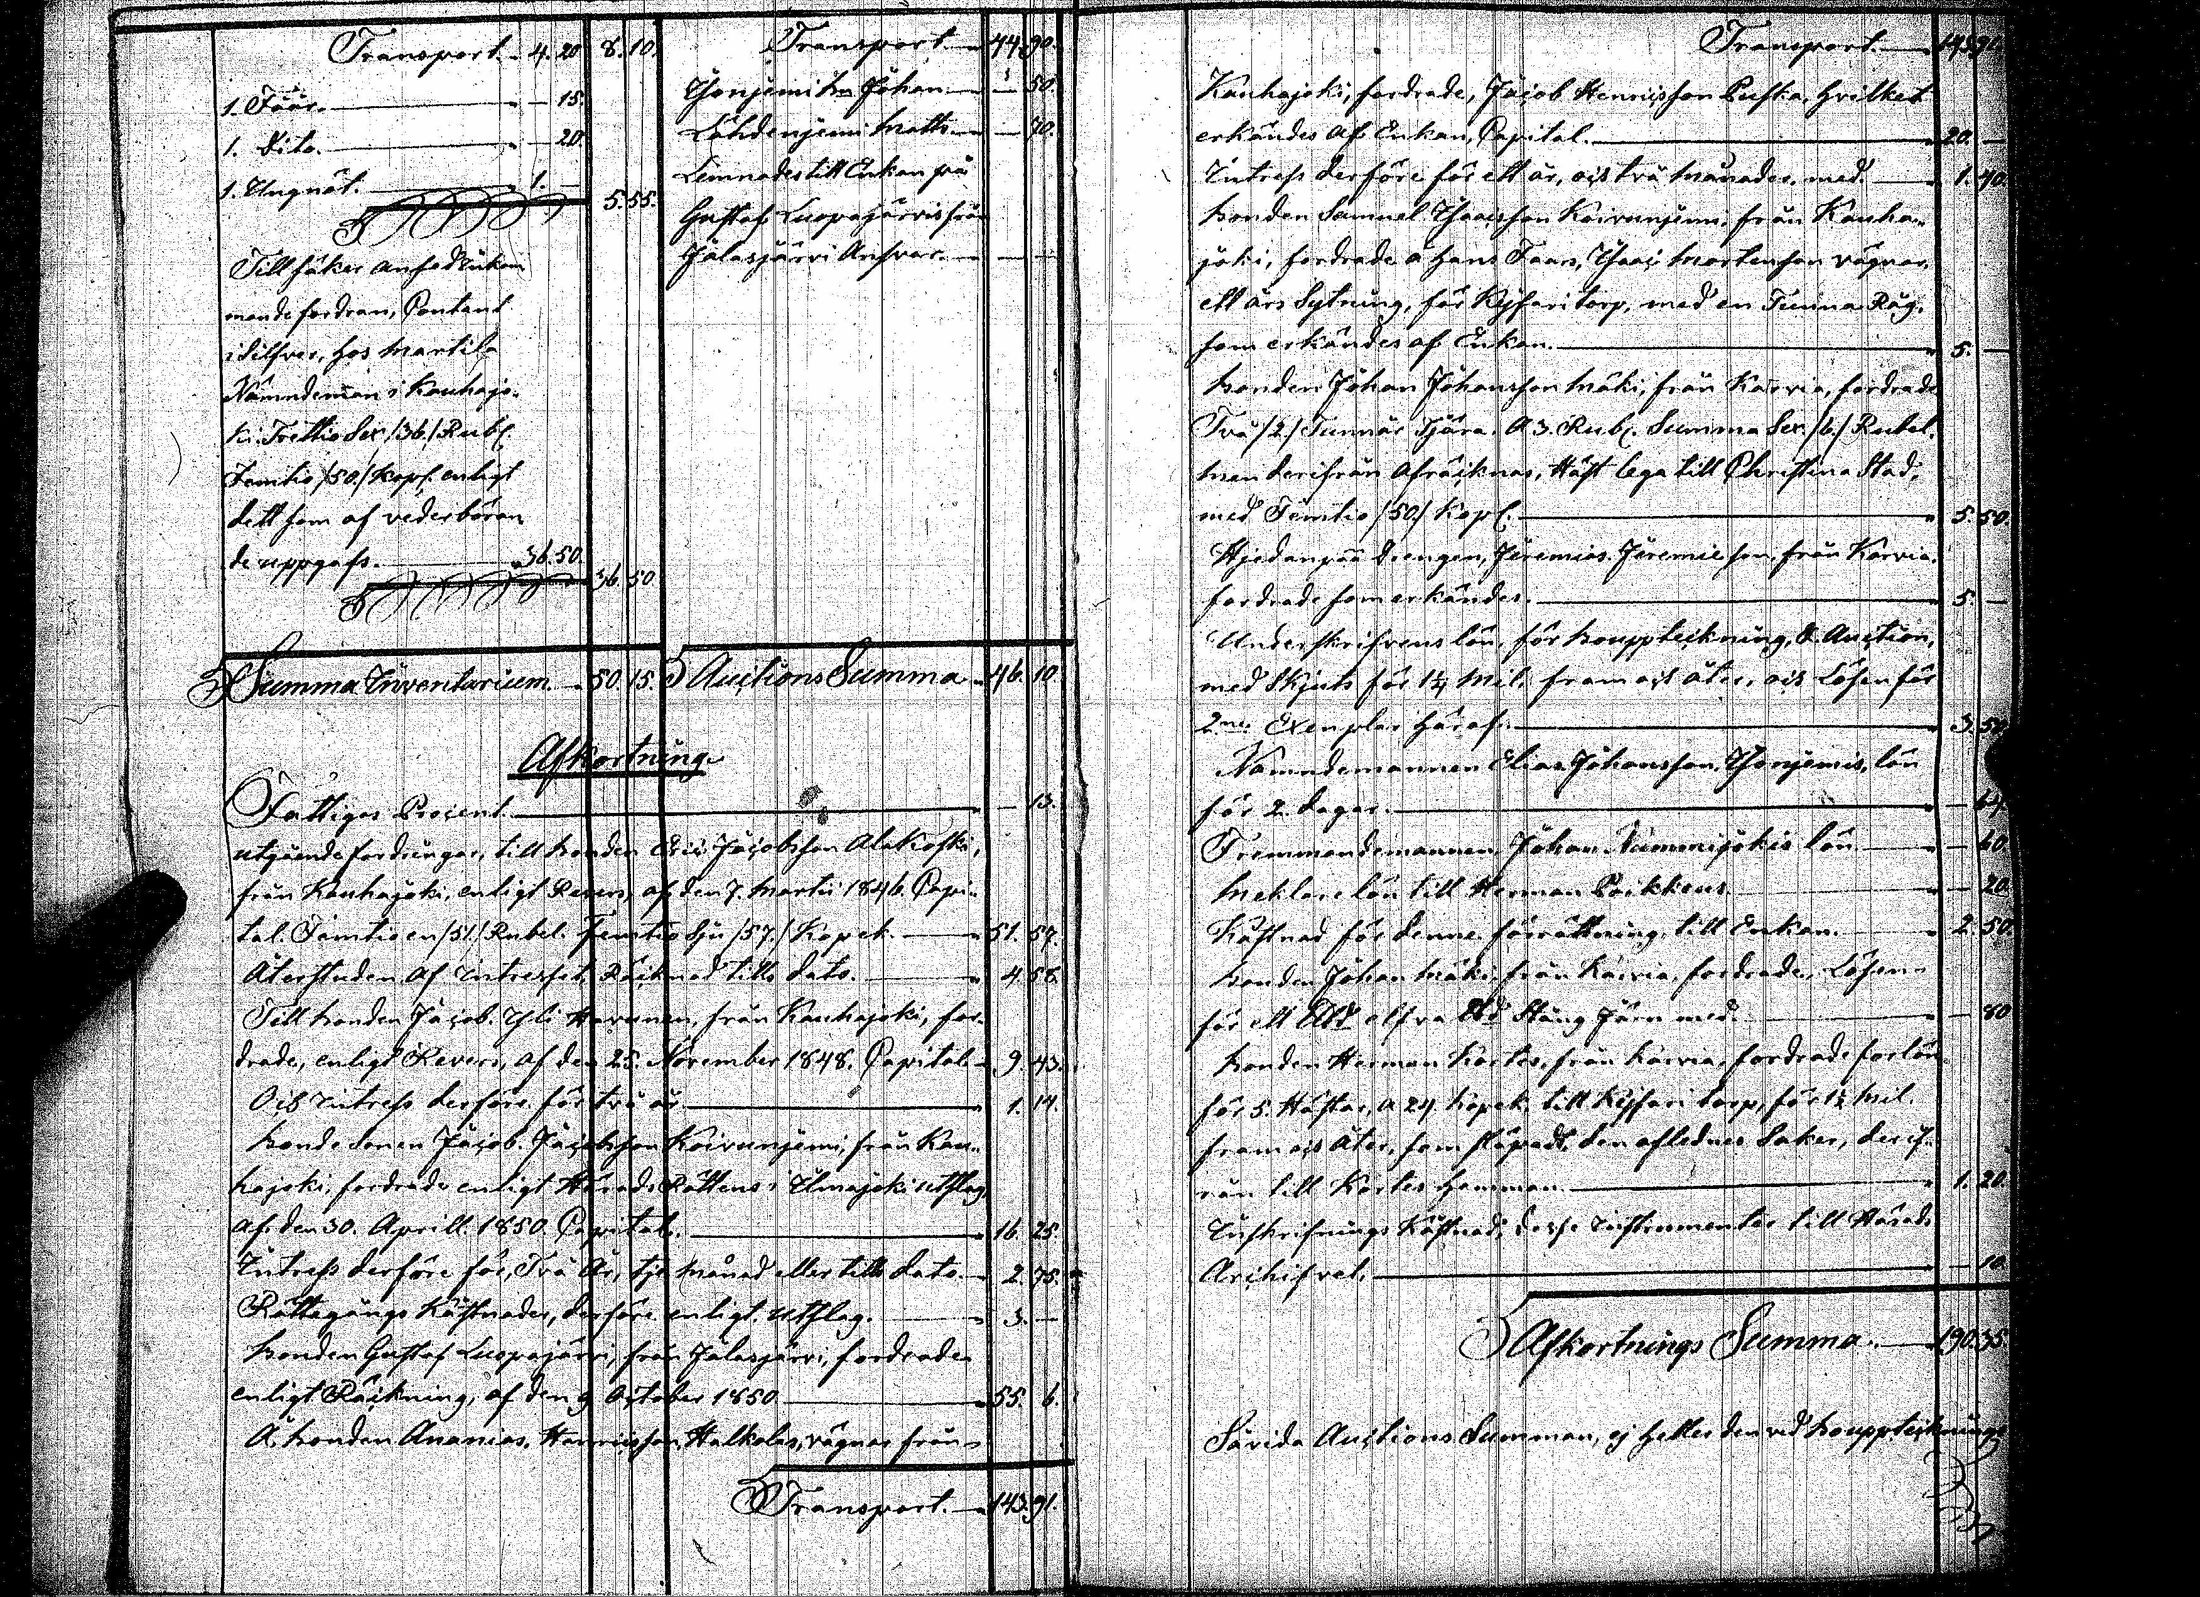 Transport. 4. 20. 8. 10.
1. Får. — 15.
1. Dito. — 20.
1. Ungnöt. 1. —
5. 55.
mande fordran, Contant
i Silfver, hos Martila
Nämndeman i Kauhajo-
ki Trettio Sex /36/ Rub.
Femtio /50/ Kop. enligt
dett som af vederböran
de uppgafs. 36. 50.
36. 50.
Summa Inventarium. 50. 15.
Transport. 44. 90.
Johan — 50.
Lähdenjemi Matts — 70.
Lemnades till Enkan på
Gustaf Luopajärvis från
Jalasjärvi Ansvar. — —
Auctions Summa 46. 10.
Afkortning.
Fattiges Procent. — 13.
utgående fordringar, till bonden Eric Jacobsson Alakoski,
från Kauhajoki, enligt Revers, af den 7. Martii 1846. Capi-
tal. Femtio en /51/ Rubel. Femtio Sju /57/ Kopek. 51. 57.
Återstoden af Intresset, Räcknad till dato. 4. 58.
Till bonden Jacob. Yli Harunen, från Kauhajoki, for-
drade, enligt Revers, af den 25. November 1848. Capital 9. 43.
Och Intress derföre för två år. 1. 14.
Bonde Sonen Jacob. Jacobsson Koivunjemi, från Kau-
hajoki, fordrade enligt Härads Rättens i Ilmajoki utslag,
af den 30. Aprill. 1850. Capital. 16. 25.
Intress derföre för, Två År, månad eller till dato. 2. 75.
Rättegångs Kåstnader, derföre enligt utslag. 3. —
bonden Gustaf Luopajärvi, från Jalasjärvi, fordrade
enligt Räckning, af den 9 October 1850. 55. 6.
Å, bonden Ananias, Henricsson, Halkolas, vägnar från
Transport. 143. 91.
Transport. 143. 91.
Kauhajoki, fordrade, Jacob Henricsson Puska, hvilket
erkändes af Enkan, Capital. 20. —
Intress derföre för ett år, och två månader, med. 1. 40.
bonden Samuel Isacsson Koivunjemi, från Kauha-
joki, fordrade å hans Faars, Isaac Mortensson vägnar,
ett års Sytning, för Kyssari torp, med en Tunna Råg,
som erkändes af Enkan. 5. —
bonden Johan Johansson Mäki, från Karvia, fordrade
Två /2/ Tunnår Tjära. A 3. Rub. Summa Sex. /6/ Rubel.
men derifrån afräcknas, Häst lega till Christina Stad,
med Femtio /50/ Kop. 5. 50.
Hjedanpää drengen, Jeremias Jeremiesson, från Karvia,
fordrade som erkändes. 5. —
Underskrifvens lön, för bouppteckning, & Auction,
med Skjuts för 1¼ Mil. fram och åter, och Lösen för
2ne Exemplar häraf. 3. 50.
Nämndemannen Elias Johansson, lön
för 2. dagar. — 64.
Fremmandemannen, Johan Nummijokis lön — 60.
Meklare lön till Herman Paikkens. — 20.
Kåstnad för denne förrättning till Enkan. 2. 50.
bonden Johan Mäki från Karvia, fordrade, Lösen
för ett elfva Stång Järn med. — 80
bonden Herman Kortes, från Karvia, fordrade forlön
för 5. Hästar, a 24. Kopek, till Kyssari torp, för 1½ Mil.
fram och Åter, som släpade den aflednes Saker, derif-
rån till Kortes Hemman. 1. 20.
Inskrifnings Kåstnad, desse Instrumenter till Härads
Archifvet. — 10.
Afkortnings Summa. 190. 35.
Såvida Auctions Summan, ej heller den vid bouppteckninge